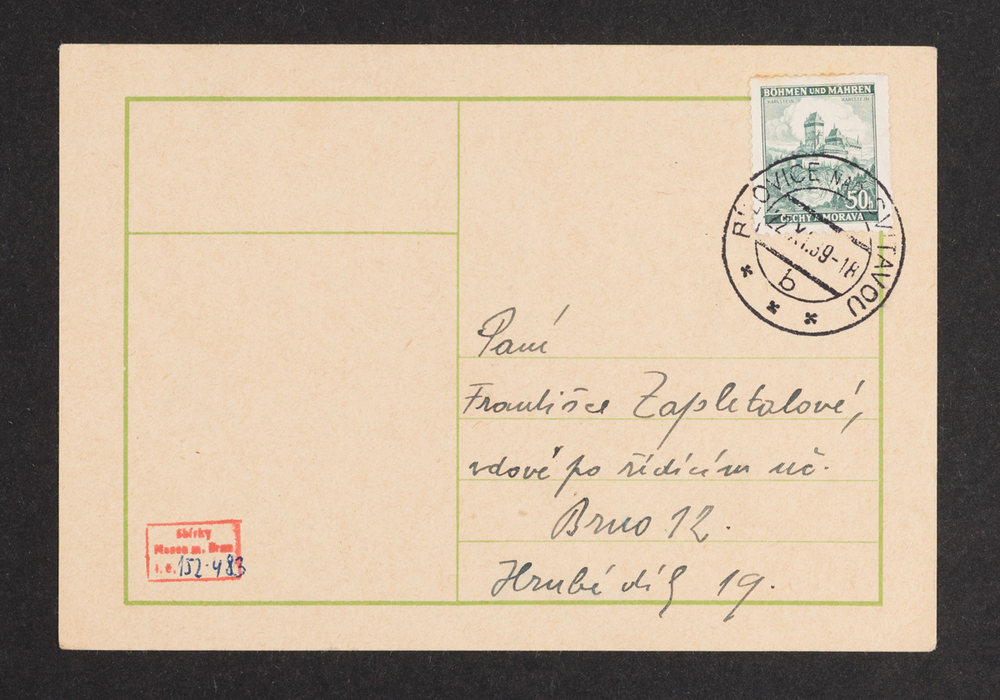 BÖHMEN UND MÄHREN
KARLŠTEJN KARLSTEIN
50h
ČECHY A MORAVA
BÍLOVICE NAD SVITAVOU
22.XI.39-18
b
Paní
Františce Zapletalové,
vdově po řídícím uč.
Brno 12.
Hrubé díly 19.
Sbírky
Musea m. Brna
i. č. 152.483